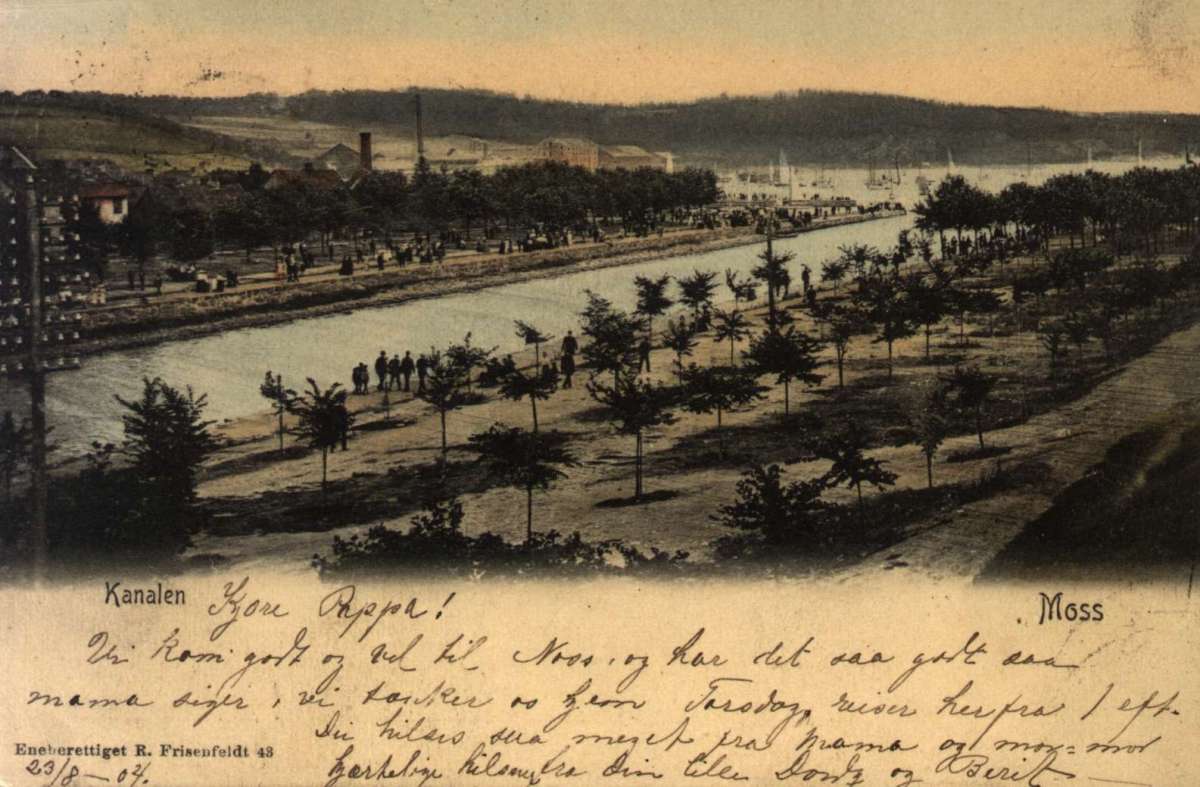 Kanalen
Kjære Pappa!
Moss
Vi kom godt og vel til Moss, og har det saa godt saa
mama siger, vi tænker os hjem Torsdag, reiser herfra 1 eft.
Du hilses saa meget fra Mama og mor=mor
Eneberettiget R. Frisenfeldt 43
23/8-04.
kjærlige hilsen fra din lille og Berit